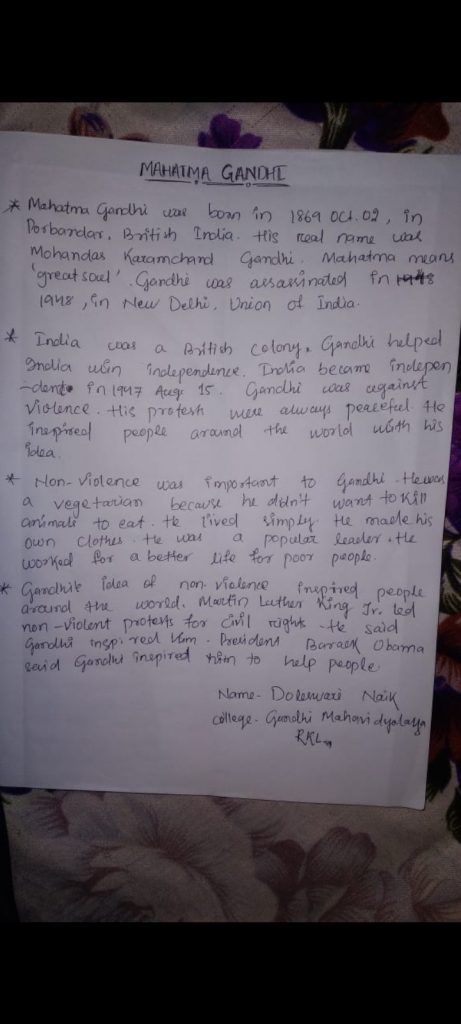 MAHATMA GANDHI
* Mahatma Gandhi was born in 1869 Oct. 02, in
Porbandar, British India. His real name was
Mohandas Karamchand Gandhi. Mahatma means
'great soul'. Gandhi was assassinated in 1948
1948, in New Delhi, Union of India.
* India was a British colony. Gandhi helped
India win independence. India became indepen
-dent in 1947 Aug 15. Gandhi was against
violence. His protest were always peaceful. He
inspired people around the world with his
idea.
* Non-violence was important to Gandhi. He was
a vegetarian because he didn't want to kill
animals to eat. He lived simply. He made his
own clothes. He was a popular leader. He
worked for a better life for poor people.
* Gandhi's idea of non-violence inspired people
around the world. Martin Luther King Jr. led
non-violent protests for civil rights. He said
Gandhi inspired him. President Barack Obama
said Gandhi inspired him to help people.
Name- Doleswari Naik
college- Gandhi Mahavidyalaya
RKL